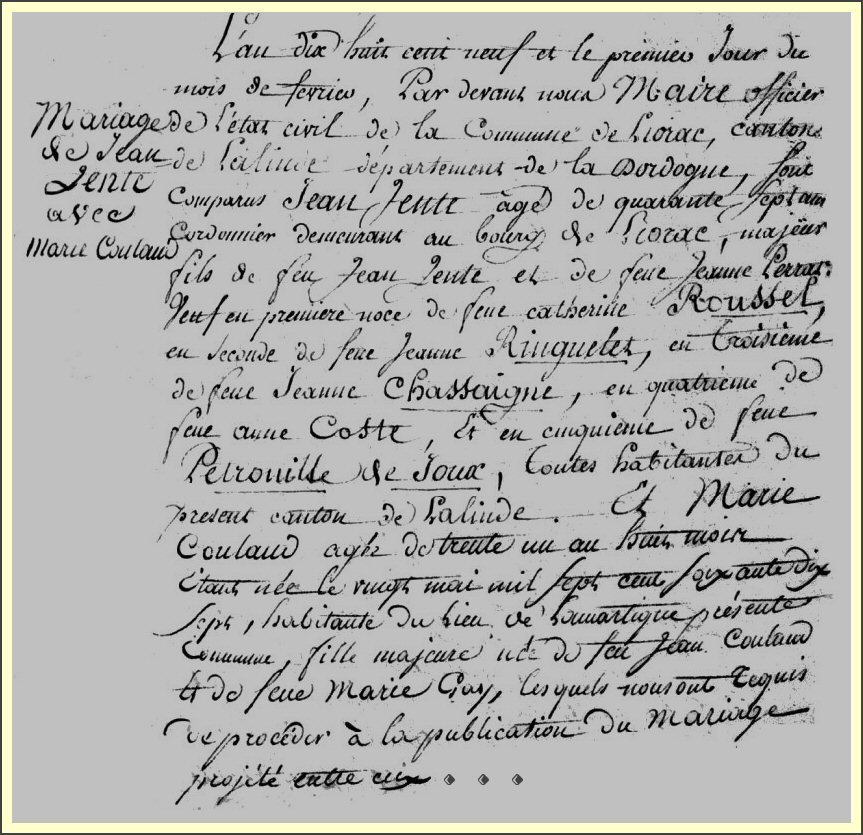 Mariage
de Jean
Jente
avec
Marie Coulaud
L'an dix huit cent neuf et le premier Jour du
mois de fevrier, Par devant nous Maire officier
de L'état civil de la Commune de Liorac, canton
de Lalinde département de la Dordogne, sont
Comparus Jean Jente âgé de quarante sept am
Cordonnier demeurant au bourg de Liorac, majeur
fils de feu Jean Jente et de feue Jeanne
Veuf en première noce de feue catherine Roussel,
en seconde de feue Jeanne Ringuelet, en troisième
de feue Jeanne Chassaigne, en quatrieme de
feue anne Coste, Et en cinquieme de feue
Petrouille de Joux, toutes habitantes du
present canton de Lalinde. Et Marie
Coulaud agée de trente un an huit mois
étant née le vingt mai mil sept cent soixante dix
sept, habitante du Lieu de Lamartigue présente
Commune, fille majeure née de feu Jean Coulaud
et de feue Marie Gay, lesquels nous ont requis
de procéder à la publication du Mariage
projété entre eux